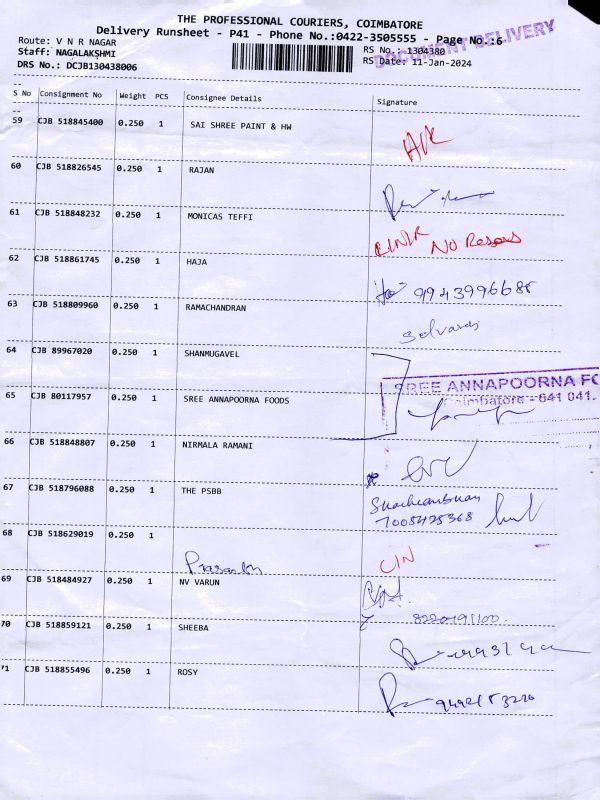 THE PROFESSIONAL COURIERS, COIMBATORE
Delivery Runsheet - P41 - Phone No.:0422-3505555 - Page No.:6
DOCUMENT DELIVERY
Route: V N R NAGAR
RS No.: 1304380
Staff: NAGALAKSHMI
RS Date: 11-Jan-2024
DRS No.: DCJB130438006
S No Consignment No Weight PCS Consignee Details Signature
59 CJB 518845400 0.250 1 SAI SHREE PAINT & HW
60 CJB 518826545 0.250 1 RAJAN
61 CJB 518848232 0.250 1 MONICAS TEFFI
NO Respons
62 CJB 518861745 0.250 1 HAJA
9943996685
63 CJB 518809960 0.250 1 RAMACHANDRAN
64 CJB 89967020 0.250 1 SHANMUGAVEL
65 CJB 80117957 0.250 1 SREE ANNAPOORNA FOODS
SREE ANNAPOORNA FO
Coimbatore - 641 041.
66 CJB 518848807 0.250 1 NIRMALA RAMANI
67 CJB 518796088 0.250 1 THE PSBB
7005425368
68 CJB 518629019 0.250 1
CIN
69 CJB 518484927 0.250 1 NV VARUN
70 CJB 518859121 0.250 1 SHEEBA
71 CJB 518855496 0.250 1 ROSY